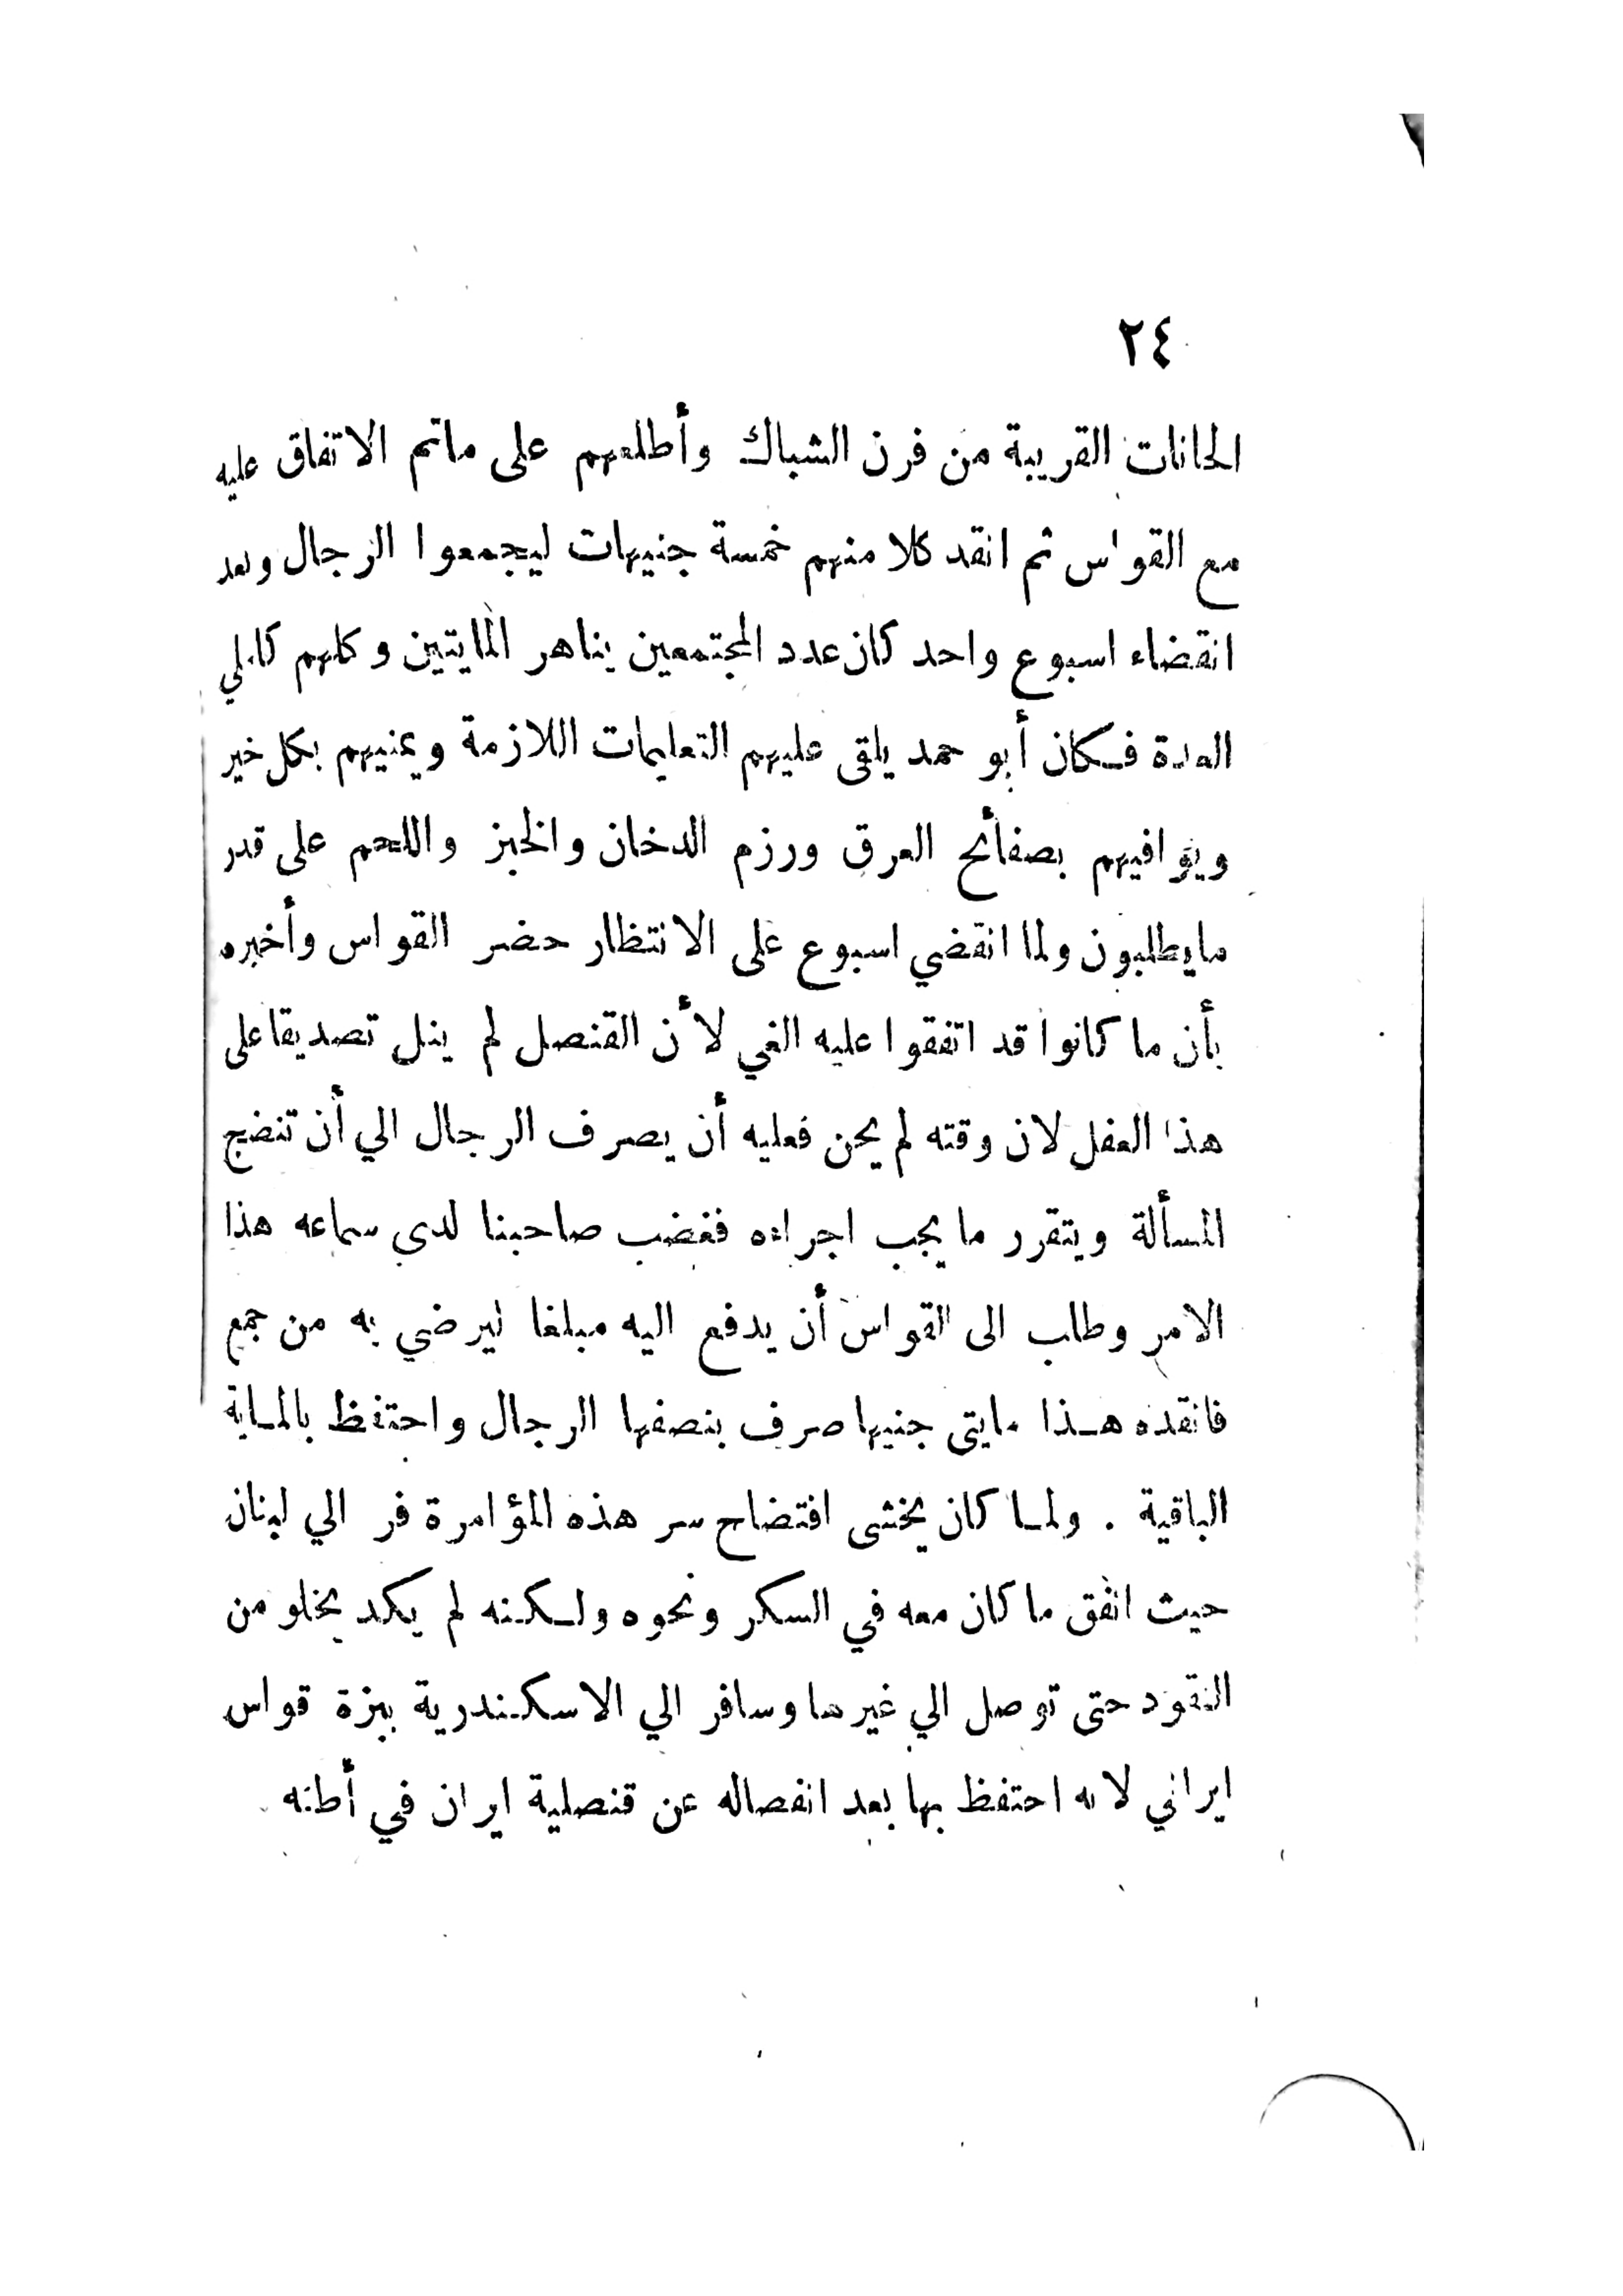 ٢٤
الحانات القريبة من فرن الشباك وأطلعهم على ماتم الاتفاق عليه
مع القواس ثم انقد كلا منهم خمسة جنيهات ليجمعوا الرجال وبعد
انقضاء اسبوع واحد كان عدد المجتمعين يناهر المايتين وكلهم كاملي
العدة فكان أبو حمد يلقى عليهم التعليمات اللازمة ويمنيهم بكل خير
ويوافيهم بصفائح العرق ورزم الدخان والخبز واللحم على قدر
مايطلبون ولما انقضي اسبوع على الانتظار حضر القواس وأخبره
بأن ما كانوا قد اتفقوا عليه الغي لأن القنصل لم ينل تصديقا على
هذا العفل لان وقته لم يحن فعليه أن يصرف الرجال الي أن تنضج
المسألة ويتقرر ما يجب اجراءه فغضب صاحبنا لدى سماعه هذا
الامر وطلب الى القواس أن يدفع اليه مبلغا ليرضي به من جمع
فانقده هذا مايتى جنيها صرف بنصفها الرجال واحتفظ بالماية
الباقية . ولما كان يخشى افتضاح سر هذه المؤامرة فر الي لبنان
حيث انفق ما كان معه في السكر ونحوه ولكنه لم يكد يخلو من
النقود حتى توصل الي غيرها وسافر الي الاسكندرية ببزة قواس
ايراني لانه احتفظ بها بعد انفصاله عن قنصلية ايران في أطنه